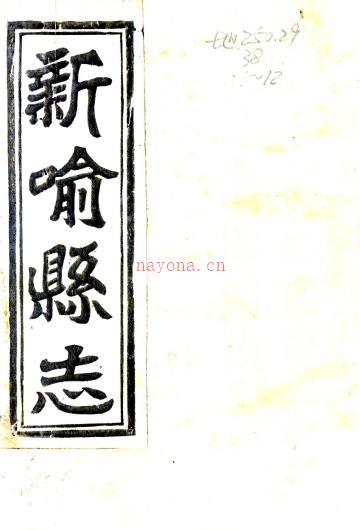 新喻縣志
地250.29
38
1~12
nayona.cn